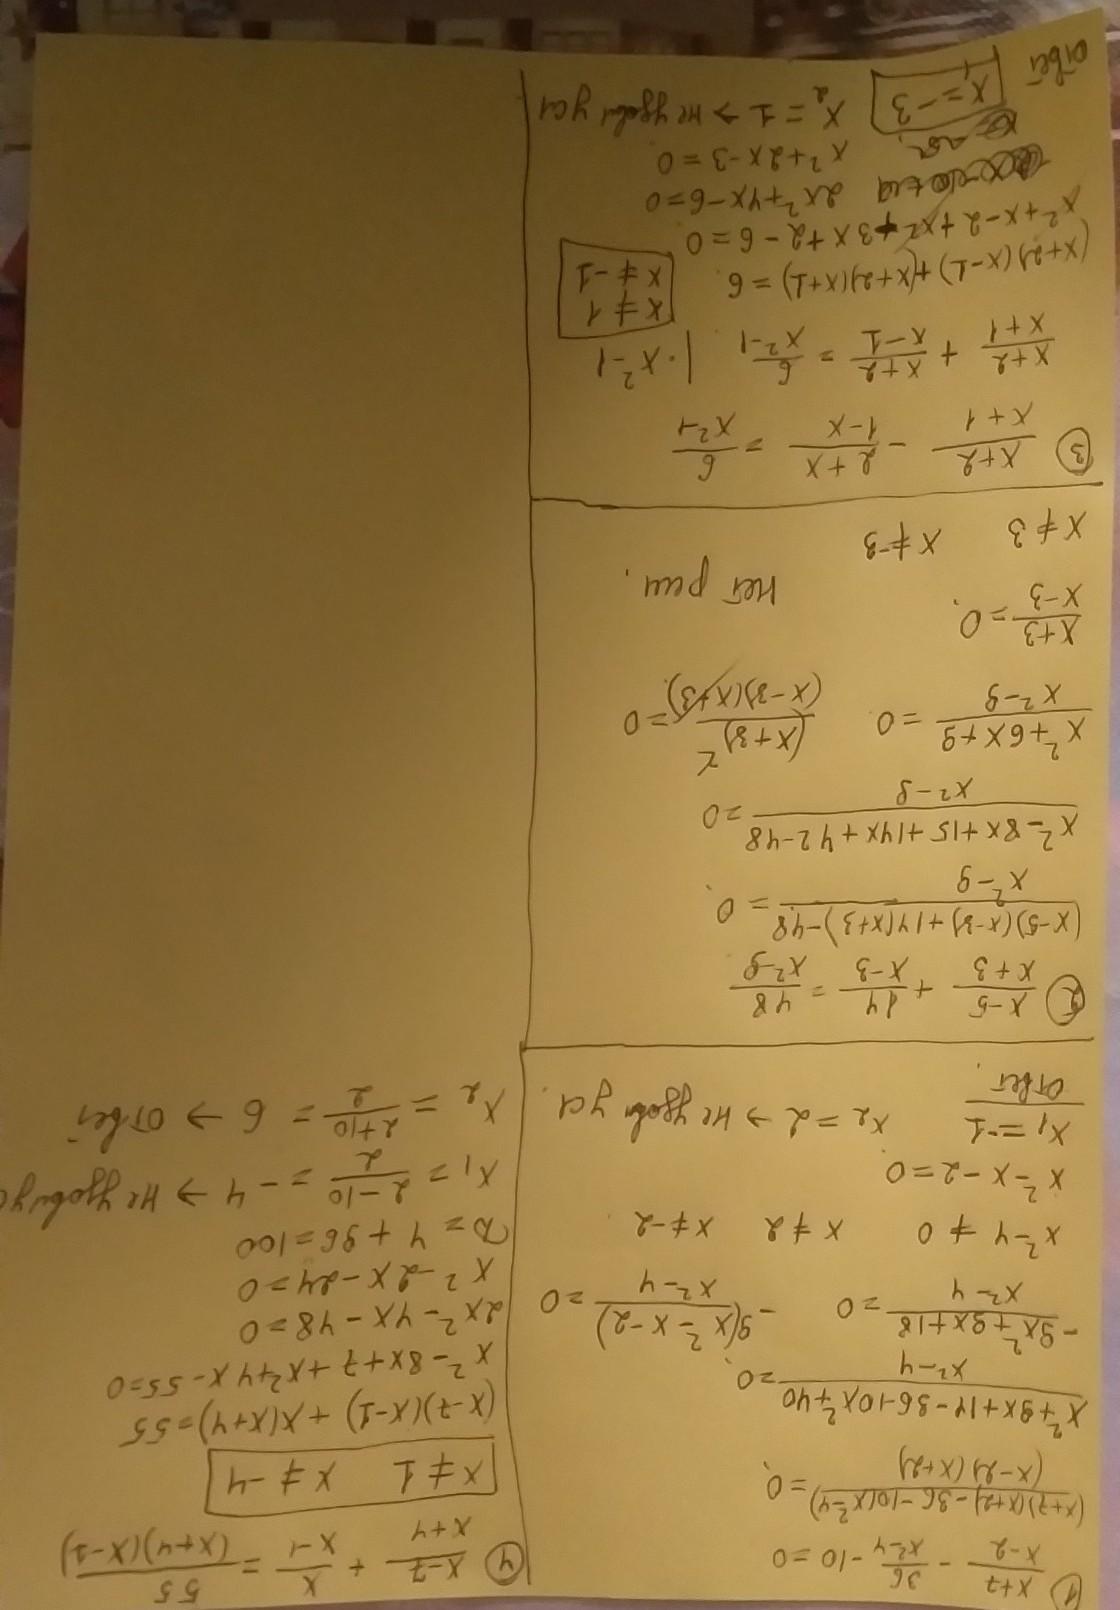 ① (x+7)/(x-2) - 36/(x²-4) - 10 = 0
((x+7)(x+2) - 36 - 10(x²-4))/((x-2)(x+2)) = 0
(x²+9x+14-36-10x²+40)/(x²-4) = 0
(-9x²+9x+18)/(x²-4) = 0    -9(x²-x-2)/(x²-4) = 0
x²-4 ≠ 0    x ≠ 2    x ≠ -2
x²-x-2 = 0
x₁ = -1    x₂ = 2 → не удовл усл.
ответ.
② (x-5)/(x+3) + 14/(x-3) = 48/(x²-9)
((x-5)(x-3)+14(x+3)-48)/(x²-9) = 0
(x²-8x+15+14x+42-48)/(x²-9) = 0
(x²+6x+9)/(x²-9) = 0    (x+3)²/((x-3)(x+3)) = 0
(x+3)/(x-3) = 0    нет реш.
x ≠ 3    x ≠ -3
③ (x+2)/(x+1) - (2+x)/(1-x) = 6/(x²-1)
(x+2)/(x+1) + (x+2)/(x-1) = 6/(x²-1)  | · x²-1
x ≠ 1
x ≠ -1
(x+2)(x-1)+(x+2)(x+1) = 6
x²+x-2+x²+3x+2-6 = 0
2x²+4x-6=0
x²+2x-3=0
x₁ = -3    x₂ = 1 → не удовл усл
ответ
④ (x-7)/(x+4) + x/(x-1) = 55/((x+4)(x-1))
x ≠ 1    x ≠ -4
(x-7)(x-1) + x(x+4) = 55
x²-8x+7+x²+4x-55=0
2x²-4x-48=0
x²-2x-24=0
D = 4+96=100
x₁ = (2-10)/2 = -4 → не удовл ус
x₂ = (2+10)/2 = 6 → ответ